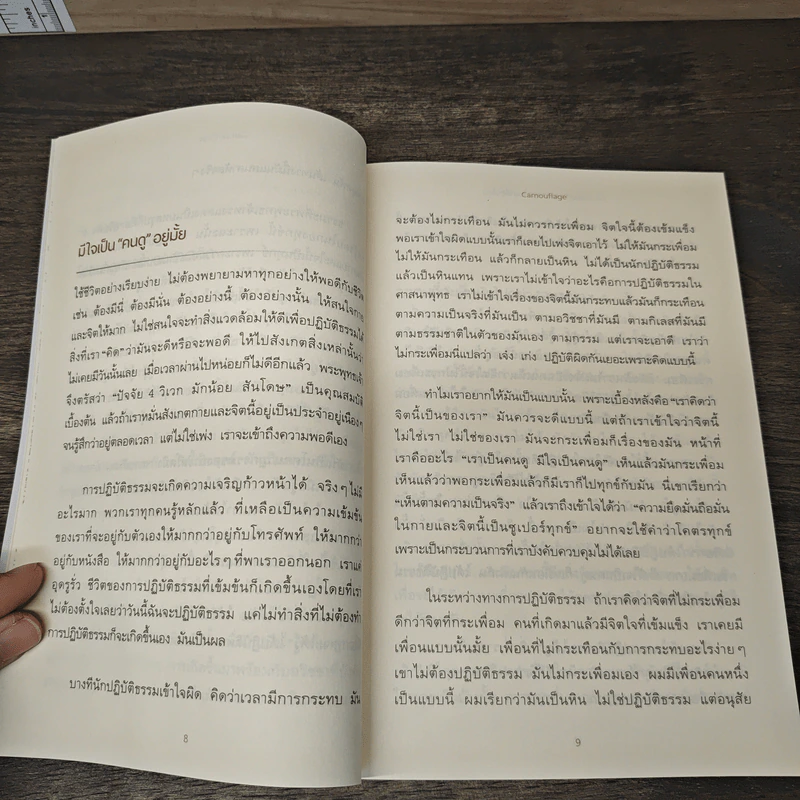 inches
มีใจเป็น “คนดู” อยู่มั้ย
ใช้ชีวิตอย่างเรียบง่าย ไม่ต้องพยายามหาทุกอย่างให้พอดีกับชีวิต
เช่น ต้องมีนี่ ต้องมีนั่น ต้องอย่างนี้ ต้องอย่างนั้น ให้สนใจกาย
และจิตให้มาก ไม่ใช่สนใจจะทำสิ่งแวดล้อมให้ดีเพื่อปฏิบัติธรรมได้
สิ่งที่เรา “คิด” ว่ามันจะดีหรือจะพอดี ให้ไปสังเกตสิ่งเหล่านั้นว่า
ไม่เคยมีวันนั้นเลย เมื่อเวลาผ่านไปหน่อยก็ไม่ดีอีกแล้ว พระพุทธเจ้า
จึงตรัสว่า “ปัจจัย 4 วิเวก มักน้อย สันโดษ” เป็นคุณสมบัติ
เบื้องต้น แล้วถ้าเราหมั่นสังเกตกายและจิตนี้อยู่เป็นประจำอยู่เนืองๆ
จนรู้สึกว่าอยู่ตลอดเวลา แต่ไม่ใช่เพ่ง เราจะเข้าถึงความพอดีเอง
การปฏิบัติธรรมจะเกิดความเจริญก้าวหน้าได้ จริงๆ ไม่มี
อะไรมาก พวกเราทุกคนรู้หลักแล้ว ที่เหลือเป็นความเข้มข้น
ของเราที่จะอยู่กับตัวเองให้มากกว่าอยู่กับโทรศัพท์ ให้มากกว่า
อยู่กับหนังสือ ให้มากกว่าอยู่กับอะไรๆ ที่พาเราออกนอก เราแค่
อุดรูรั่ว ชีวิตของการปฏิบัติธรรมที่เข้มข้นก็เกิดขึ้นเองโดยที่เรา
ไม่ต้องตั้งใจเลยว่าวันนี้ฉันจะปฏิบัติธรรม แค่ไม่ทำสิ่งที่ไม่ต้องทำ
การปฏิบัติธรรมก็จะเกิดขึ้นเอง มันเป็นผล
บางทีนักปฏิบัติธรรมเข้าใจผิด คิดว่าเวลามีการกระทบ มัน
8
Camouflage
จะต้องไม่กระเทือน มันไม่ควรกระเพื่อม จิตใจนี้ต้องเข้มแข็ง
พอเราเข้าใจผิดแบบนั้นเราก็เลยไปเพ่งจิตเอาไว้ ไม่ให้มันกระเพื่อม
ไม่ให้มันกระเทือน แล้วก็กลายเป็นหิน ไม่ได้เป็นนักปฏิบัติธรรม
แล้วเป็นหินแทน เพราะเราไม่เข้าใจว่าอะไรคือการปฏิบัติธรรมใน
ศาสนาพุทธ เราไม่เข้าใจเรื่องของจิตนี้มันกระทบแล้วมันก็กระเทือน
ตามความเป็นจริงที่มันเป็น ตามอวิชชาที่มันมี ตามกิเลสที่มันมี
ตามธรรมชาติในตัวของมันเอง ตามกรรม แต่เราจะเอาดี เราว่า
ไม่กระเพื่อมนี่แปลว่า เจ๋ง เก่ง ปฏิบัติผิดกันเยอะเพราะคิดแบบนี้
ทำไมเราอยากให้มันเป็นแบบนั้น เพราะเบื้องหลังคือ “เราคิดว่า
จิตนี้เป็นของเรา” มันควรจะดีแบบนี้ แต่ถ้าเราเข้าใจว่าจิตนี้
ไม่ใช่เรา ไม่ใช่ของเรา มันจะกระเพื่อมก็เรื่องของมัน หน้าที่
เราคืออะไร “เราเป็นคนดู มีใจเป็นคนดู” เห็นแล้วมันกระเพื่อม
เห็นแล้วว่าพอกระเพื่อมแล้วก็มีเราไปทุกข์กับมัน นี่เขาเรียกว่า
“เห็นตามความเป็นจริง” แล้วเราถึงเข้าใจได้ว่า “ความยึดมั่นถือมั่น
ในกายและจิตนี้เป็นซูเปอร์ทุกข์” อยากจะใช้คำว่าโคตรทุกข์
เพราะเป็นกระบวนการที่เราบังคับควบคุมไม่ได้เลย
ในระหว่างทางการปฏิบัติธรรม ถ้าเราคิดว่าจิตที่ไม่กระเพื่อม
ดีกว่าจิตที่กระเพื่อม คนที่เกิดมาแล้วมีจิตใจที่เข้มแข็ง เราเคยมี
เพื่อนแบบนั้นมั้ย เพื่อนที่ไม่กระเทือนกับการกระทบอะไรง่ายๆ
เขาไม่ต้องปฏิบัติธรรม มันไม่กระเพื่อมเอง ผมมีเพื่อนคนหนึ่ง
เป็นแบบนี้ ผมเรียกว่ามันเป็นหิน ไม่ใช่ปฏิบัติธรรม แต่อนุสัย
9